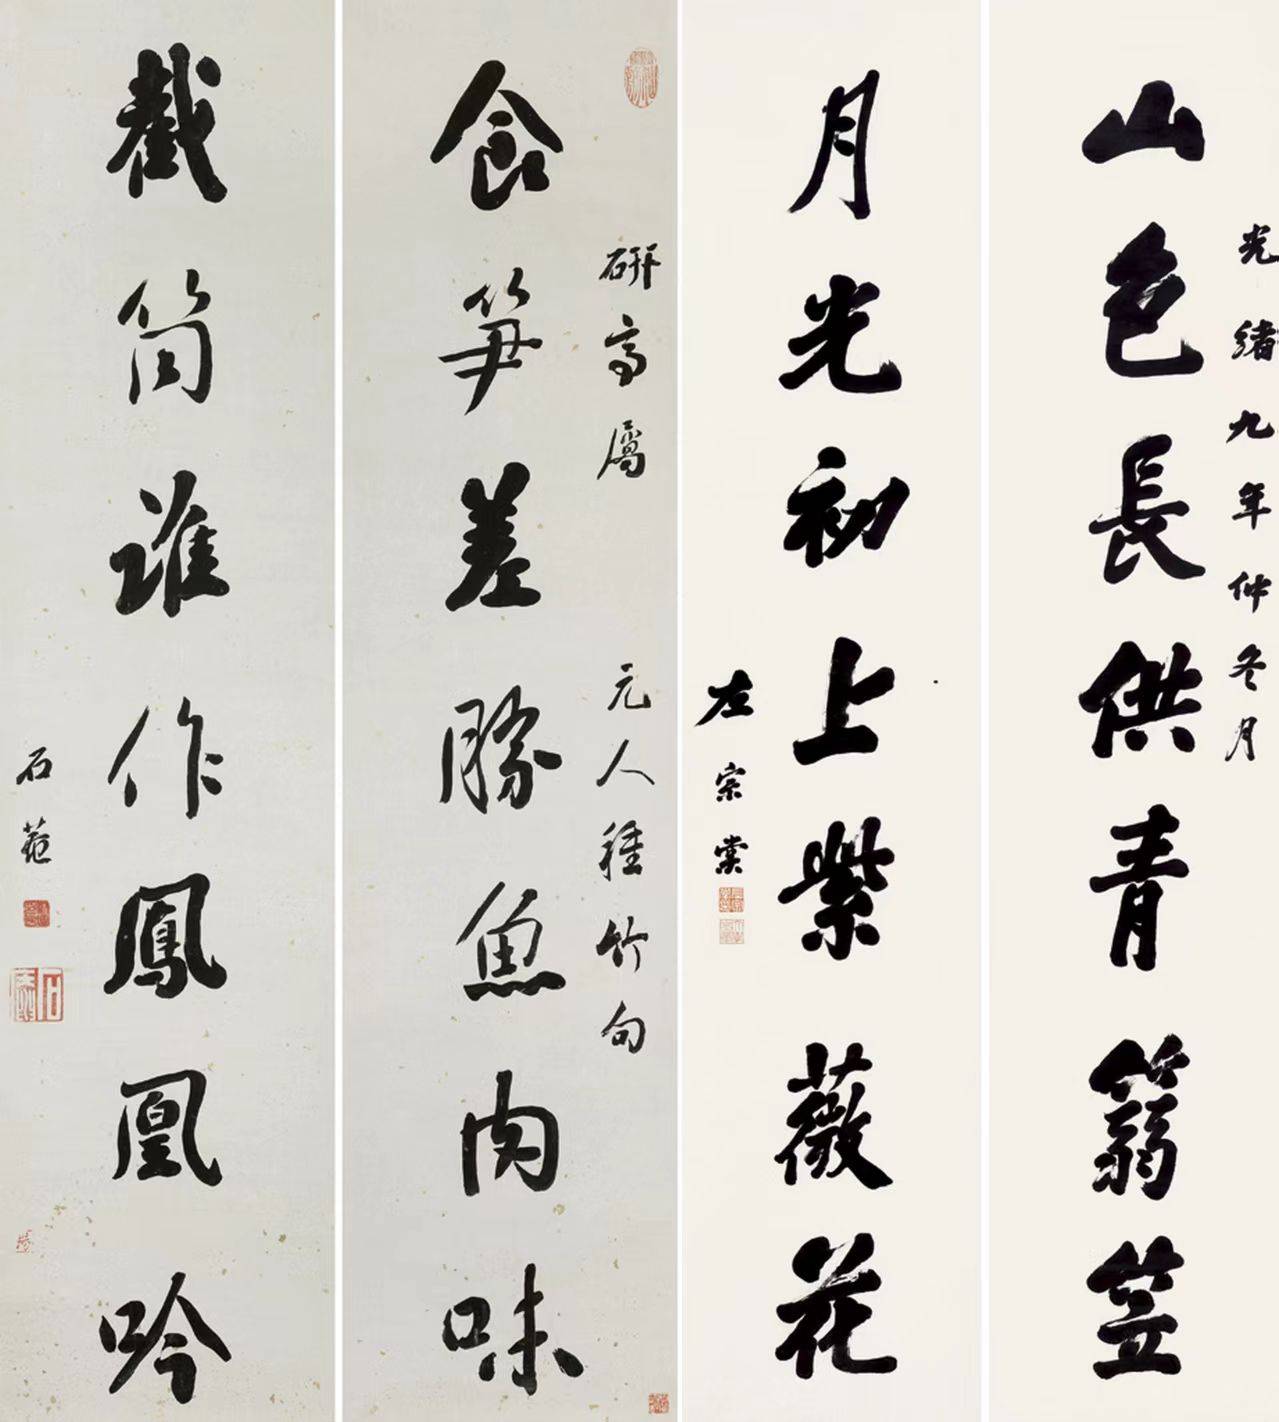 光緒九年仲冬月
山色長供青篛笠
月光初上紫薇花
左宗棠
研高屬
食笋差勝魚肉味
元人種竹句
截筒誰作鳳凰吟
石菴